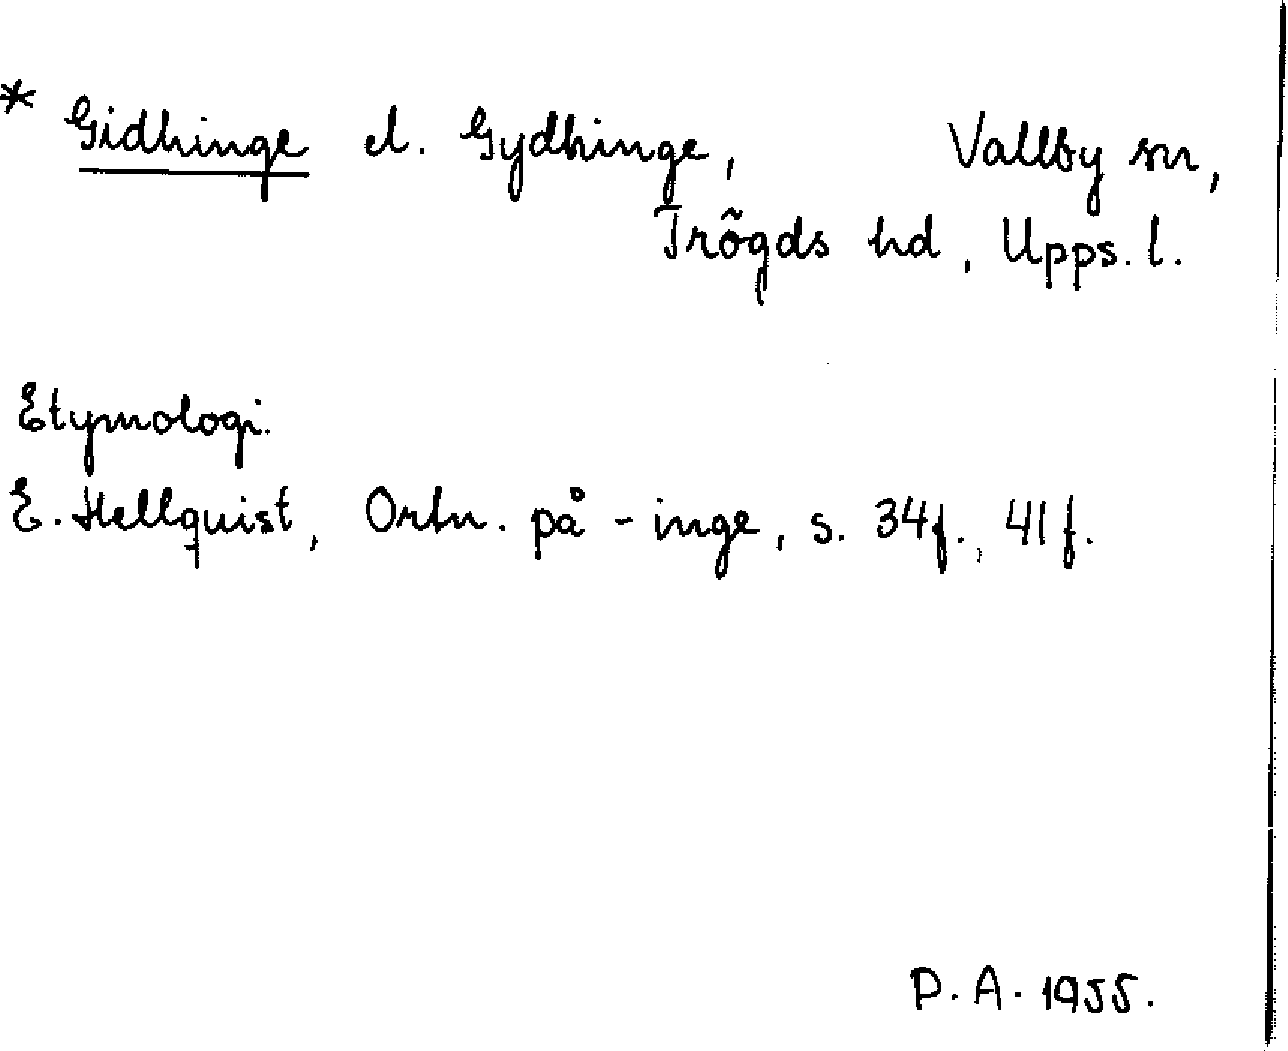 * Gidhinge el. Gydhinge, Vallby sn,
Trögds hd, Upps. l.
Etymologi.
E. Hellquist, Ortn. på -inge, s. 34f., 41f.
P.A. 1955.